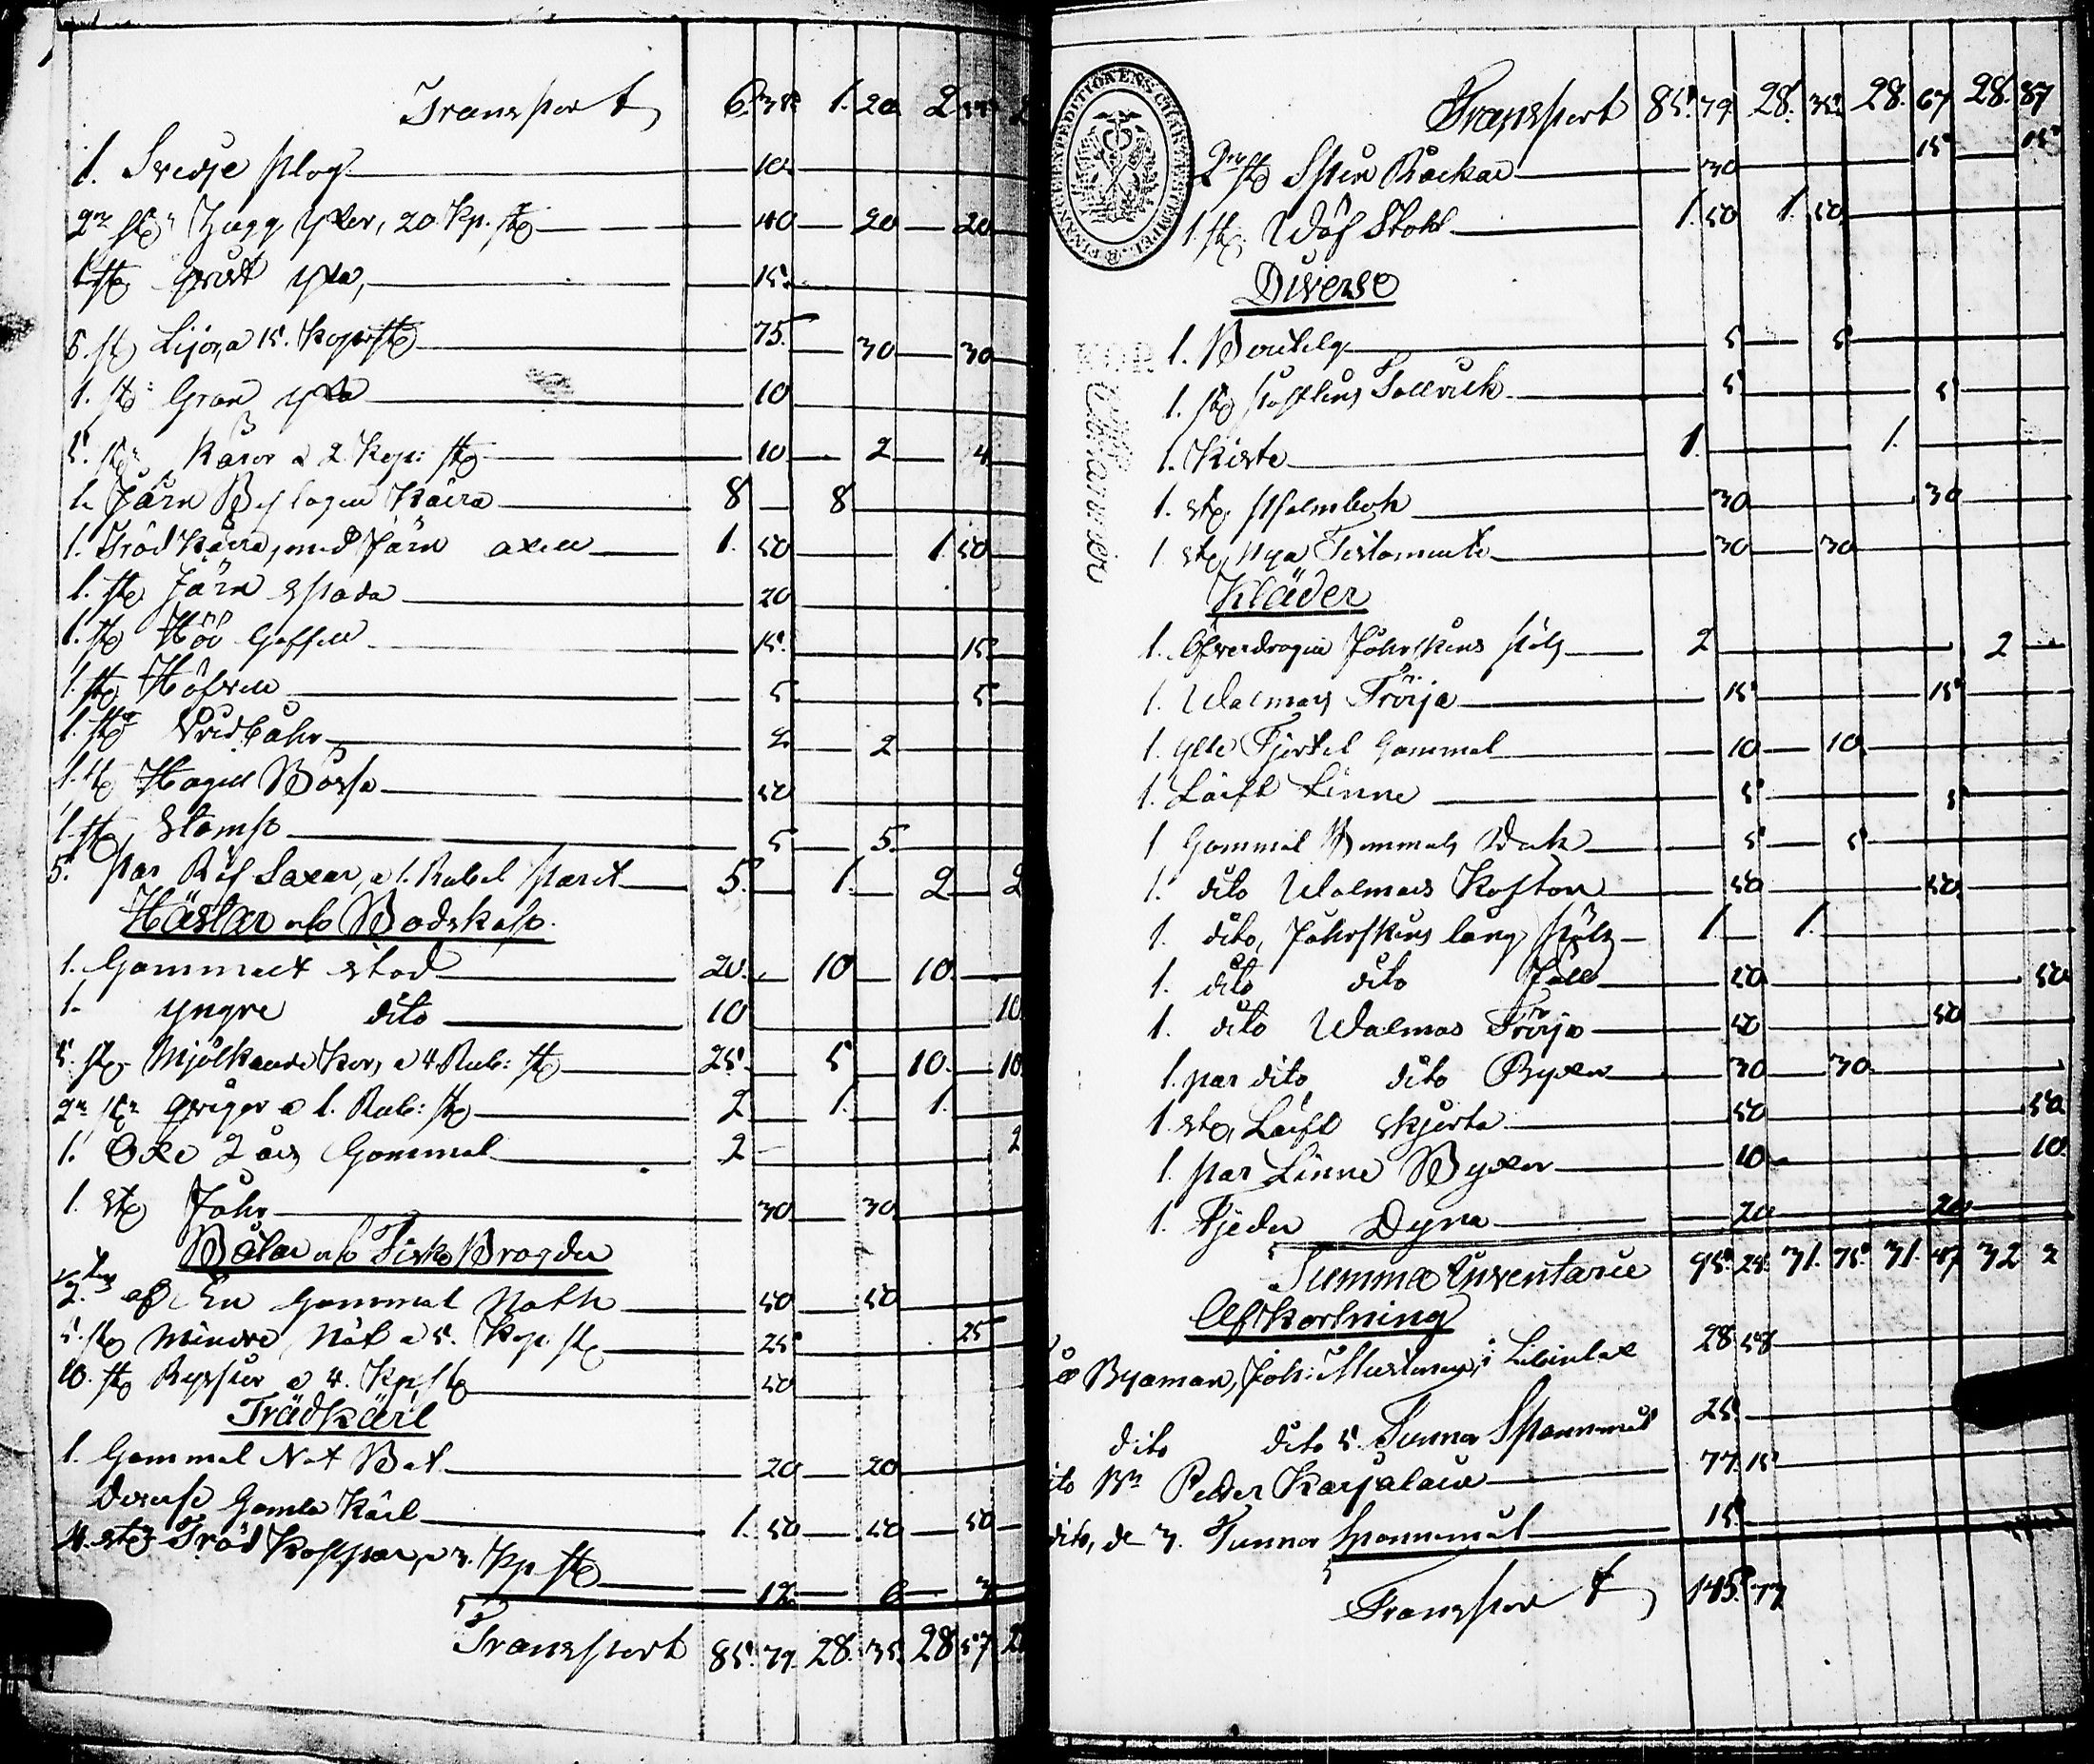 Transport 6. 38. 1. 20 2
1. Svedje plog 10.
2ne st: Hugg yxor, 20 Kp. st 40 20 20
1 st yxa, 15.
5. st Lijor, a 15. Kop st 75. 30 30
1. st: Gran yxa 10
5. st: Råsor a 2 Kop: st 10 2 4
1. Järn Beslagen Kärra 8 8
1. Träd Kärra, med Järn axell 1. 50 1. 50
1. st Järn spada 20
1. st Hö Gaffell 15. 15.
1. st Höfvell 5 5
1. st Vridbåhr 2 2
1. st Hagell Bössa 50
1. st, Stamp 5 5.
5. par Räf Saxar, a 1. Rubel paret 5. 1. 2 2
Hästar och Bodskap.
1. Gammalt stod 20. 10 10.
1. yngre dito 10 10.
5. st Mjölkande Kor, a 4 Rub: st 25. 5 10. 10
2ne st: qvigor a 1. Rub: st 2 1. 1.
1. Oxe 2 års Gammal 2 2
1. st Fåhr 30 30
Båtar och Fisk Bragder
1/2. af En Gammal Noth 50 50
5. st Mindre Nät a 5. Kop. st 25 25
10. st Ryssior a 4. Kp st 50
Trädkärl
1. Gammal Not Båt 20 20
Diverse Gamla Kärl 1. 50 50 50
4. st Träd Koppar, a 3. Kp st 12 6 3
Transport 85. 79. 28. 35. 28 57 2
FINANCE EXPEDITIONENS CHARTÆ STEMPEL
Transport 85. 79. 28. 35. 28. 67 28. 87
2ne st Spin Råckar 30 15 15
1. st. Wäf Stohl 1. 50 1. 50
Diverse
1. Boutelg 5 5
1. st Tallrick 5 5
1. Kista 1. 1.
1. st, Psalmbok 30 30
1 st, Nya Testamente 30 30
Kläder
1. Öfverdragen Fåhrskins Päls 2 2
1. Walmars Tröija 15 15
1. ylle Kjortel Gammal 10 10
1. Lärft Linne 5 5
1 Gammal Bommuls Duk 5 5
1. dito Walmars Kaftan 50 50
1. dito, Fåhrskins lång Päls 1. 1.
1. dito dito Fäll 50 50
1. dito Walmas Tröja 50 50
1. par dito dito Byxor 30 30
1 st, Lärft Skjorta 50 50
1. par Linne Byxor 10 10
1. Fjeder Dyna 20 20
Summa Inventarie 95. 24. 31. 75. 31. 47 32 2
Afkortning
Byaman, Joh: i 28 58
dito dito 5. Tunnor Spannmål 25.
Bn Petter Karjalain 77. 15
dito, de 3. Tunnor Spannmål 15
Transport 145. 73